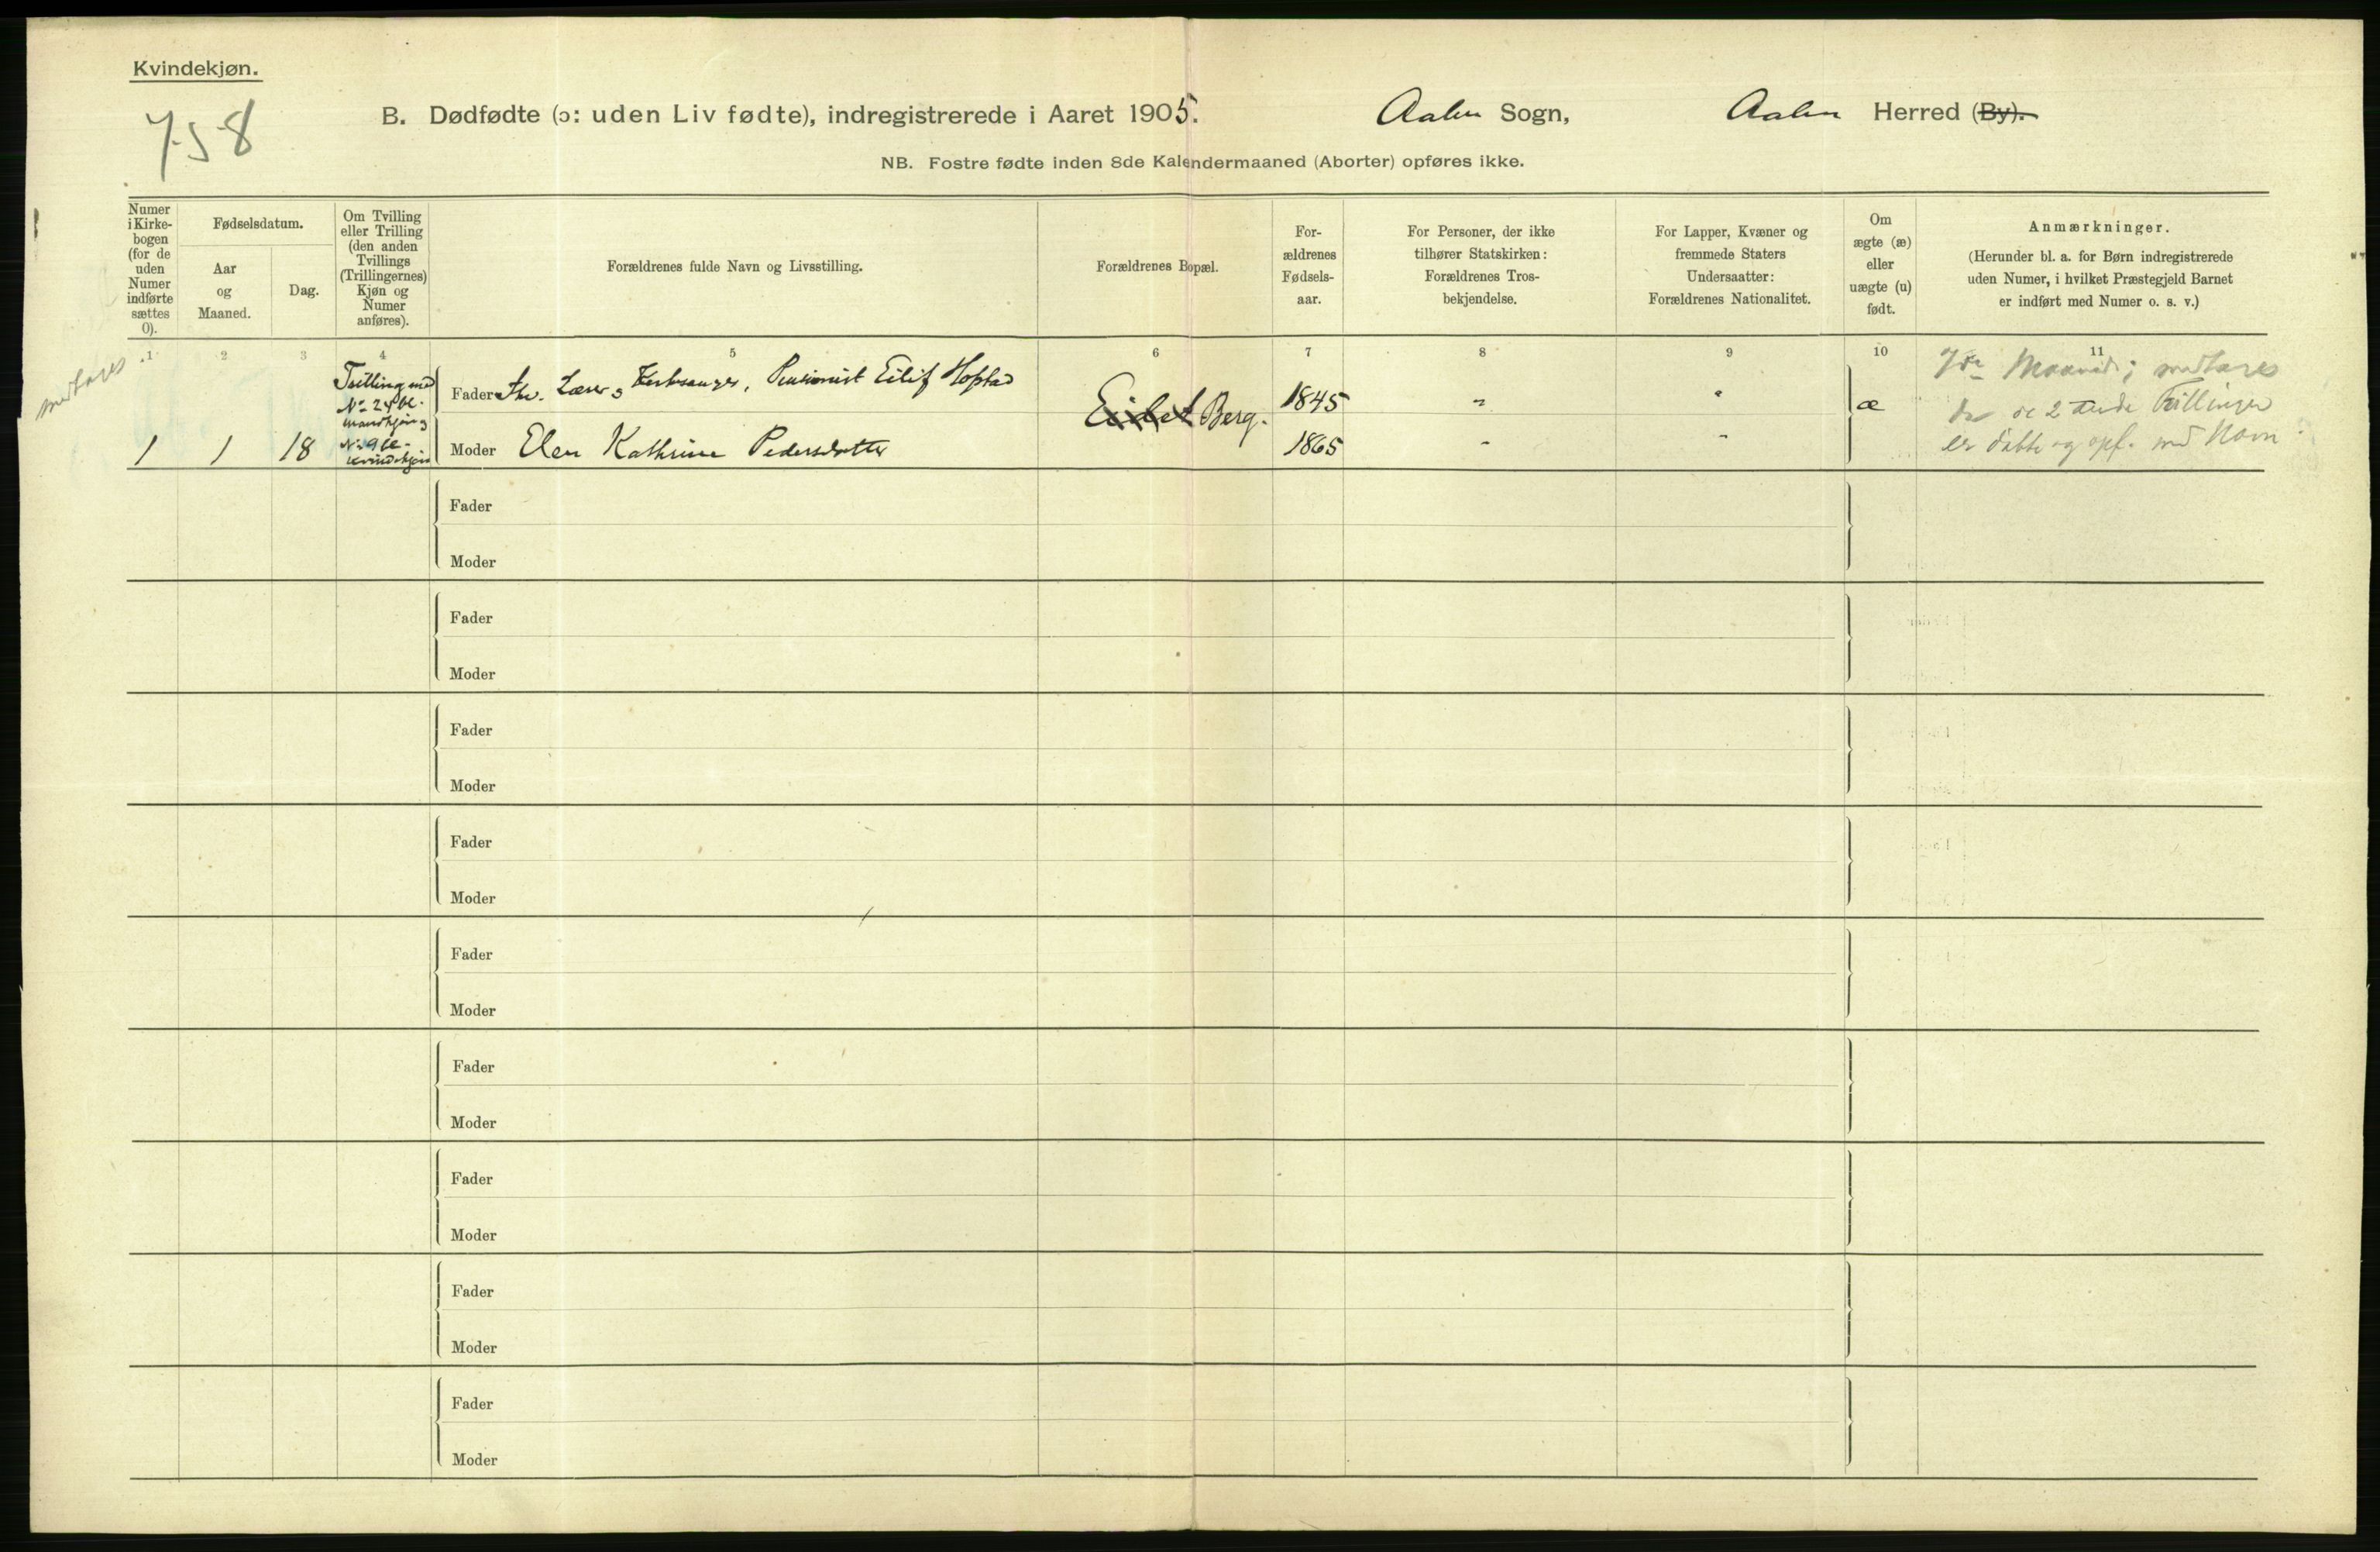 Kvindekjøn.
758
B. Dødfødte (ɔ: uden Liv fødte), indregistrerede i Aaret 1905. Aalen Sogn, Aalen Herred (By).
NB. Fostre fødte inden 8de Kalendermaaned (Aborter) opføres ikke.
Numer i Kirkebogen (for de uden Numer indførte sættes 0).
Fødselsdatum.
Aar og Maaned.
Dag.
Om Tvilling eller Trilling (den anden Tvillings (Trillingernes) Kjøn og Numer anføres).
Forældrenes fulde Navn og Livsstilling.
Forældrenes Bopæl.
Forældrenes Fødselsaar.
For Personer, der ikke tilhører Statskirken: Forældrenes Trosbekjendelse.
For Lapper, Kvæner og fremmede Staters Undersaatter: Forældrenes Nationalitet.
Om ægte (æ) eller uægte (u) født.
Anmærkninger.
(Herunder bl. a. for Børn indregistrerede uden Numer, i hvilket Præstegjeld Barnet er indført med Numer o. s. v.)
1 2 3 4 5 6 7 8 9 10 11
medtages
Trilling med
No 24
Mandkjøn og
No 9
Kvindekjøn
Fader Lærer, Kirkesanger, Pensionist Eilif Hofstad
Eidet Berg.
1845 " " æ
1 1 18
Moder Elen Kathrine Pedersdatter
1865 " "
7de Maaned; medtages
da de 2 andre Trillinger
er døbte og opf. med Navn
Fader
Moder
Fader
Moder
Fader
Moder
Fader
Moder
Fader
Moder
Fader
Moder
Fader
Moder
Fader
Moder
Fader
Moder